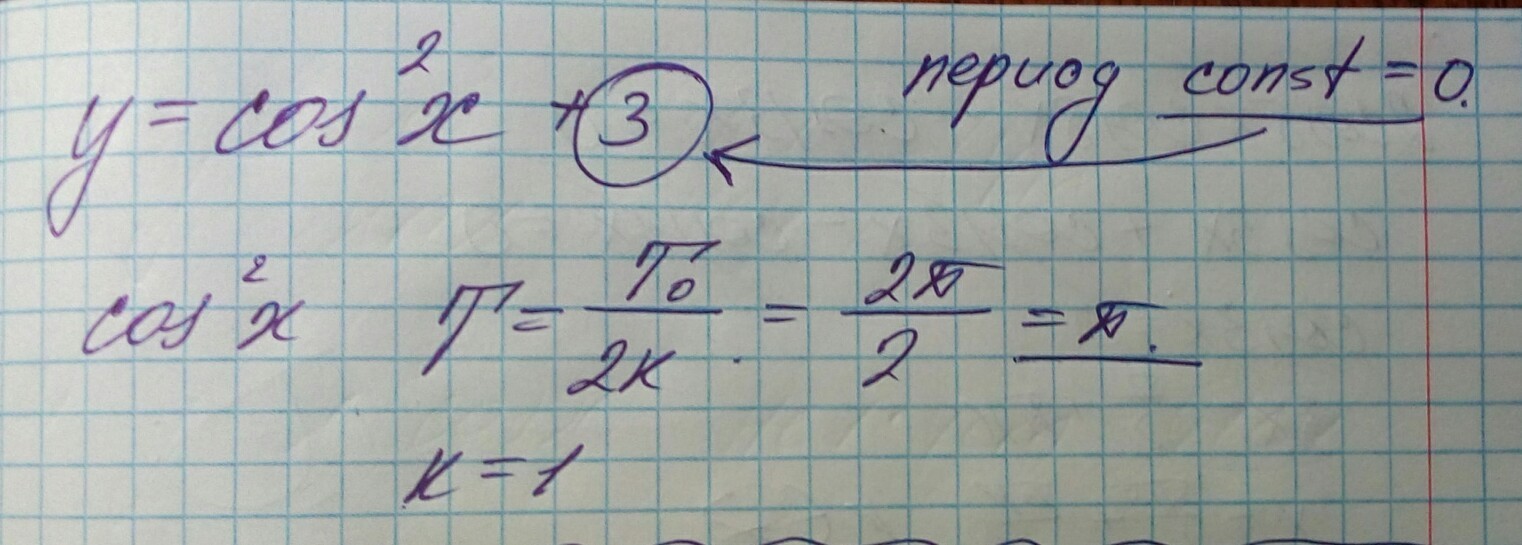 y = cos²x + 3 период const = 0.
cos²x T = T₀/2к = 2π/2 = π.
к = 1